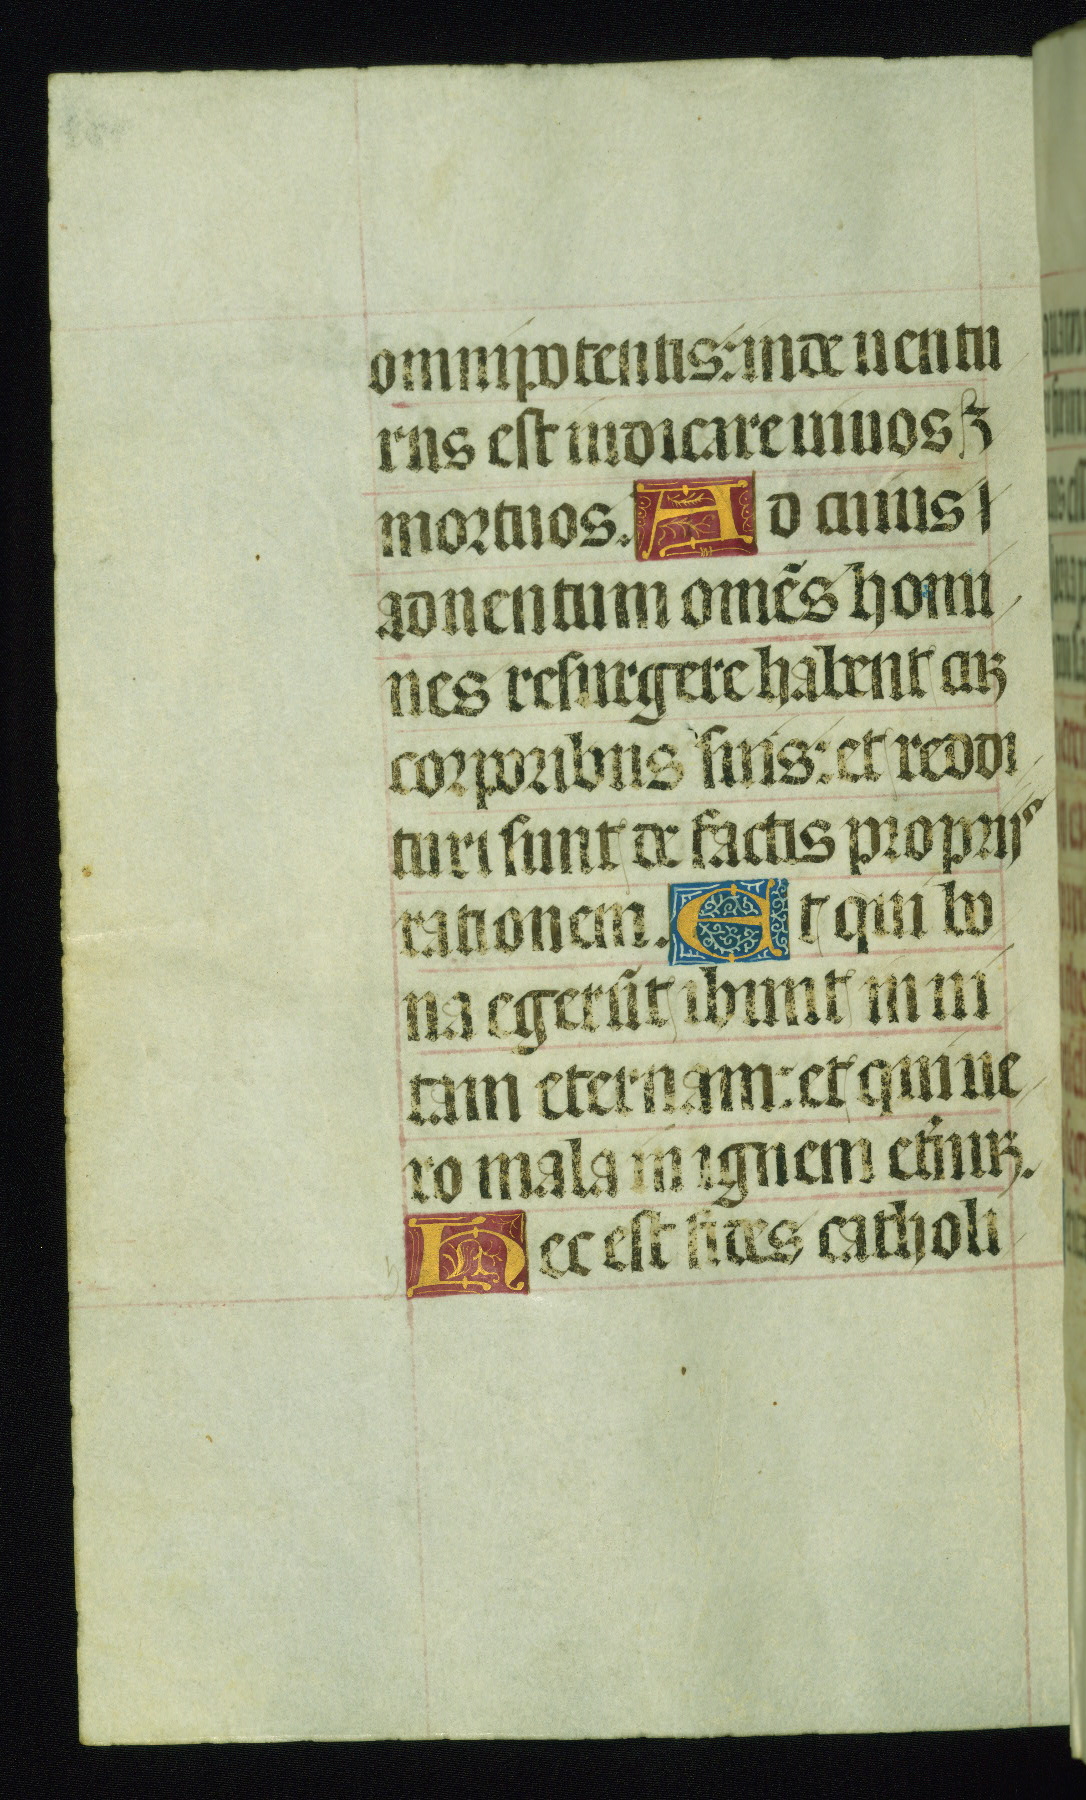 omnipotentis: inde uentu
rus est iudicare uiuos ꝫ
mortuos. Ad cuius
aduentum omēs homi
nes resurgere habent cū
corporibus suis: et reddi
turi sunt de factis proprijs
rationem. Et qui bo
na egerūt ibunt in ui
tam eternam: et qui ue
ro mala in ignem et̄nuꝫ.
Hec est fides catholi